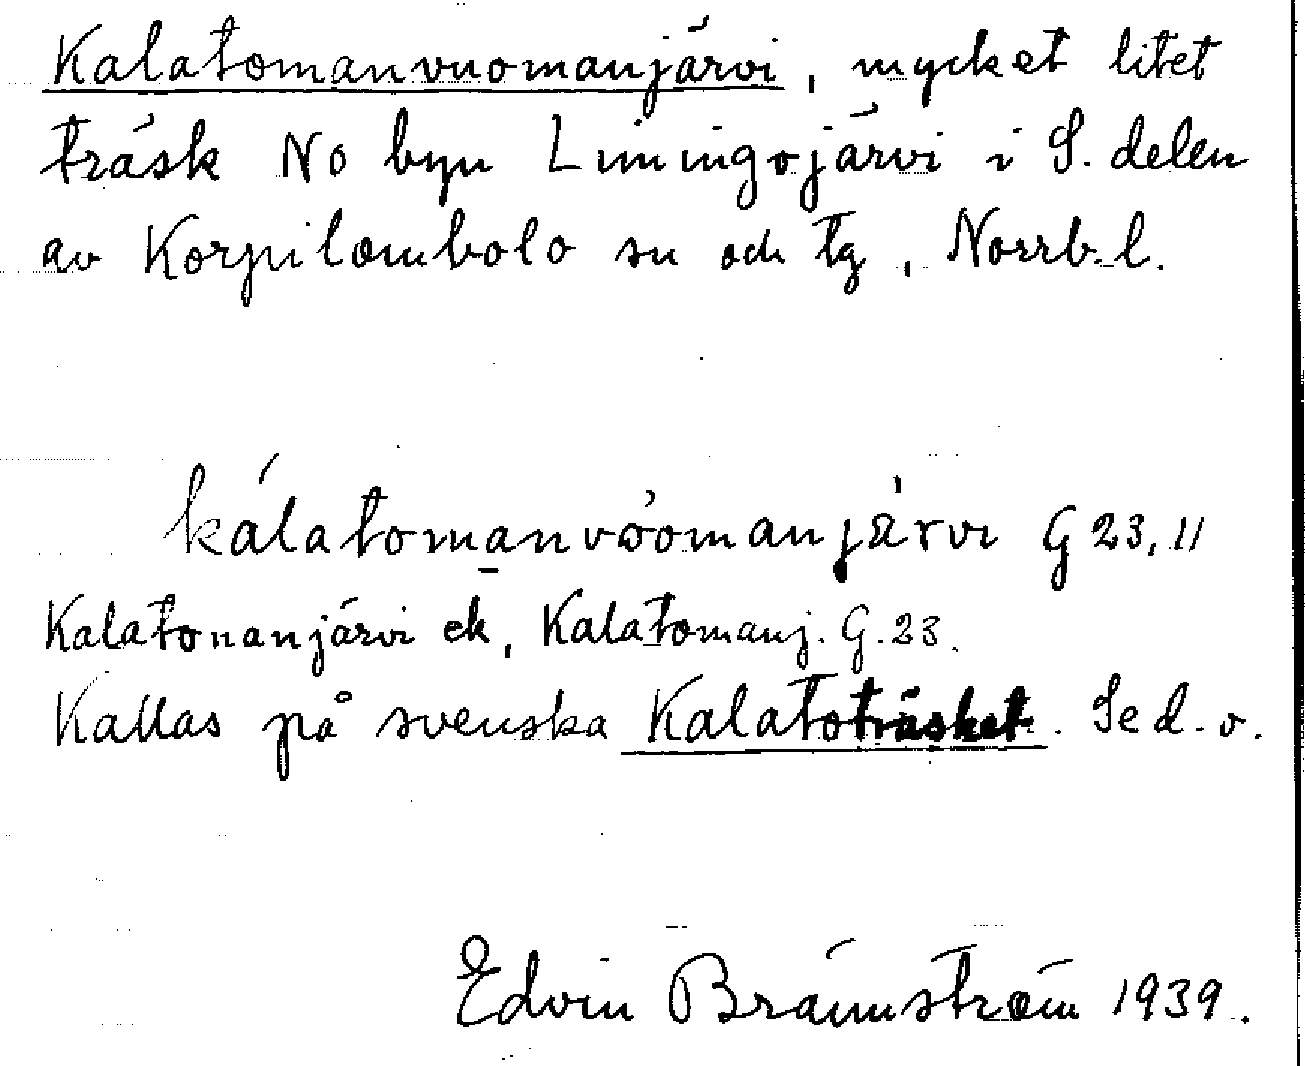 Kalatomanvuomanjärvi, mycket litet
träsk NO byn Limingojärvi i S. delen
av Korpilombolo sn och tg, Norrb. l.
kálatomanvòomanjärvi G 23, 11
Kalatonanjärvi ek, Kalatomanj. G. 23.
Kallas på svenska Kalatoträsket. Se d. o.
Edvin Brännström 1939.